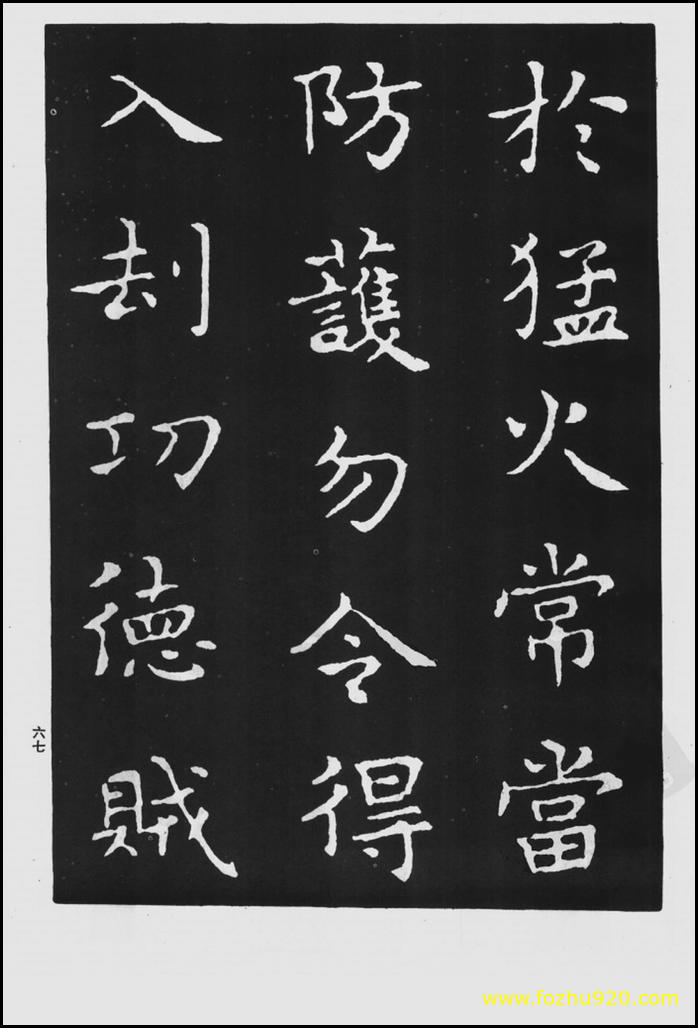 於猛火常當
防護勿令得
入刦功德賊
六七
www.fozhu920.com